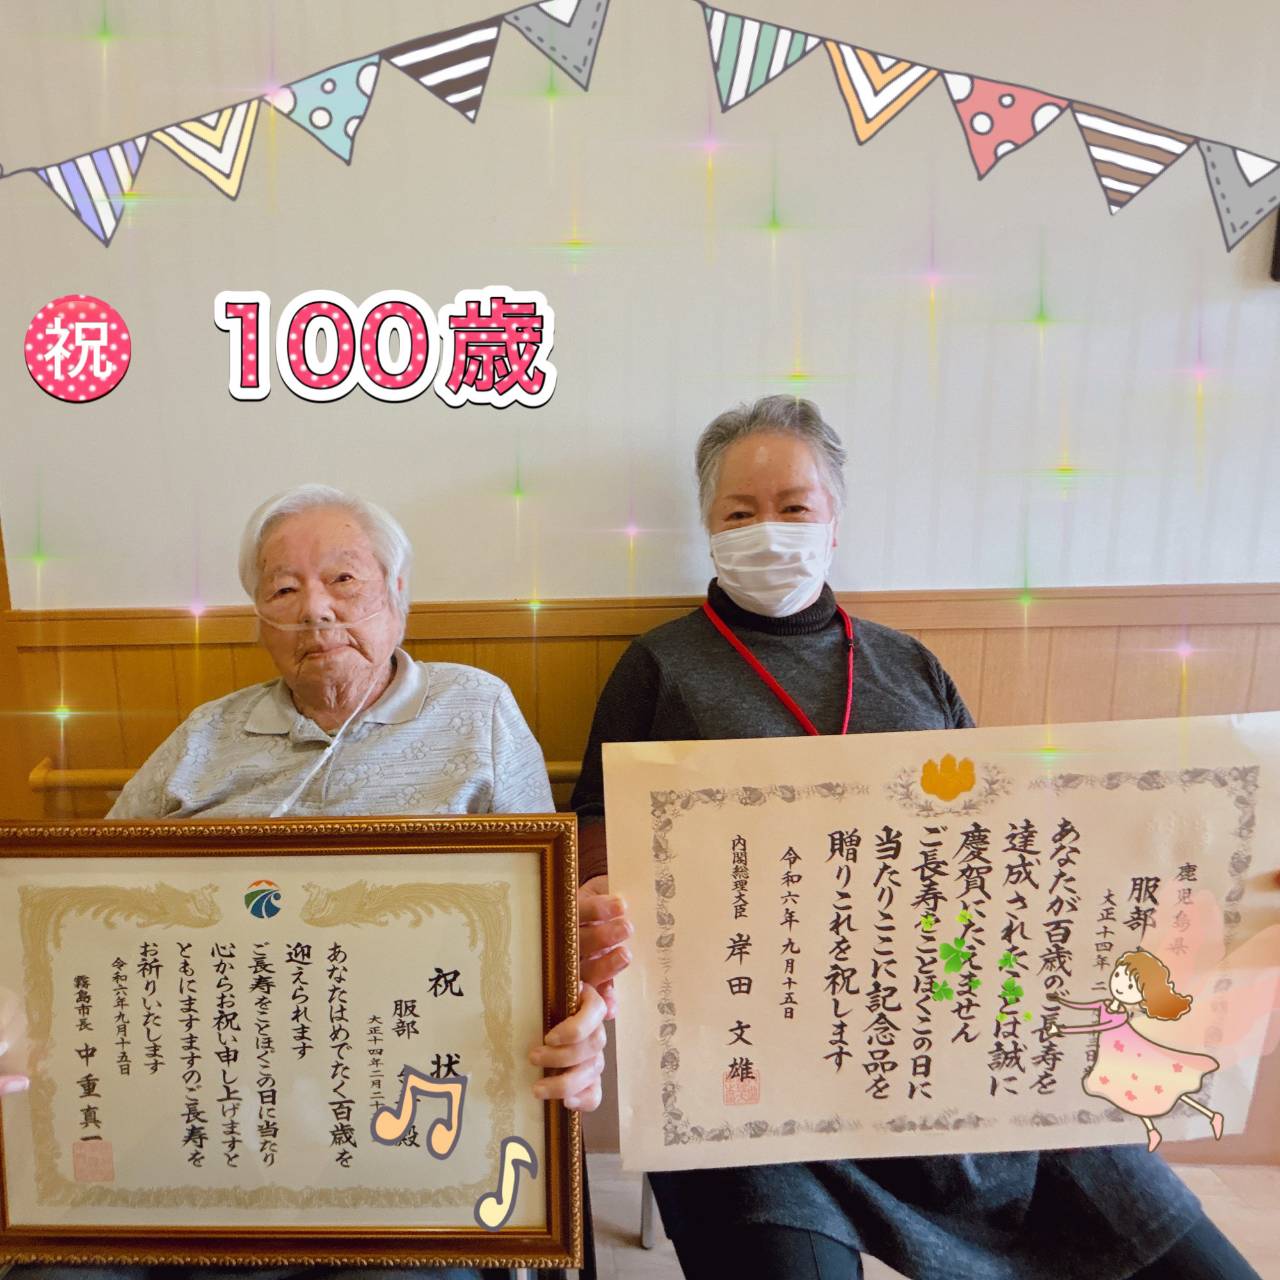 祝
100歳
祝状
服部
大正十四年二月二十
殿
あなたはめでたく百歳を
迎えられます
ご長寿をことほぐこの日に当たり
心からお祝い申し上げますと
ともにますますのご長寿を
お祈りいたします
令和六年九月十五日
霧島市長 中重真一
鹿児島県
服部
大正十四年二
あなたが百歳のご長寿を
達成されたことは誠に
慶賀にたえません
ご長寿をことほぐこの日に
当たりここに記念品を
贈りこれを祝します
令和六年九月十五日
内閣総理大臣 岸田文雄